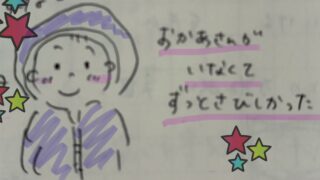 おかあさんが
いなくて
ずっとさびしかった